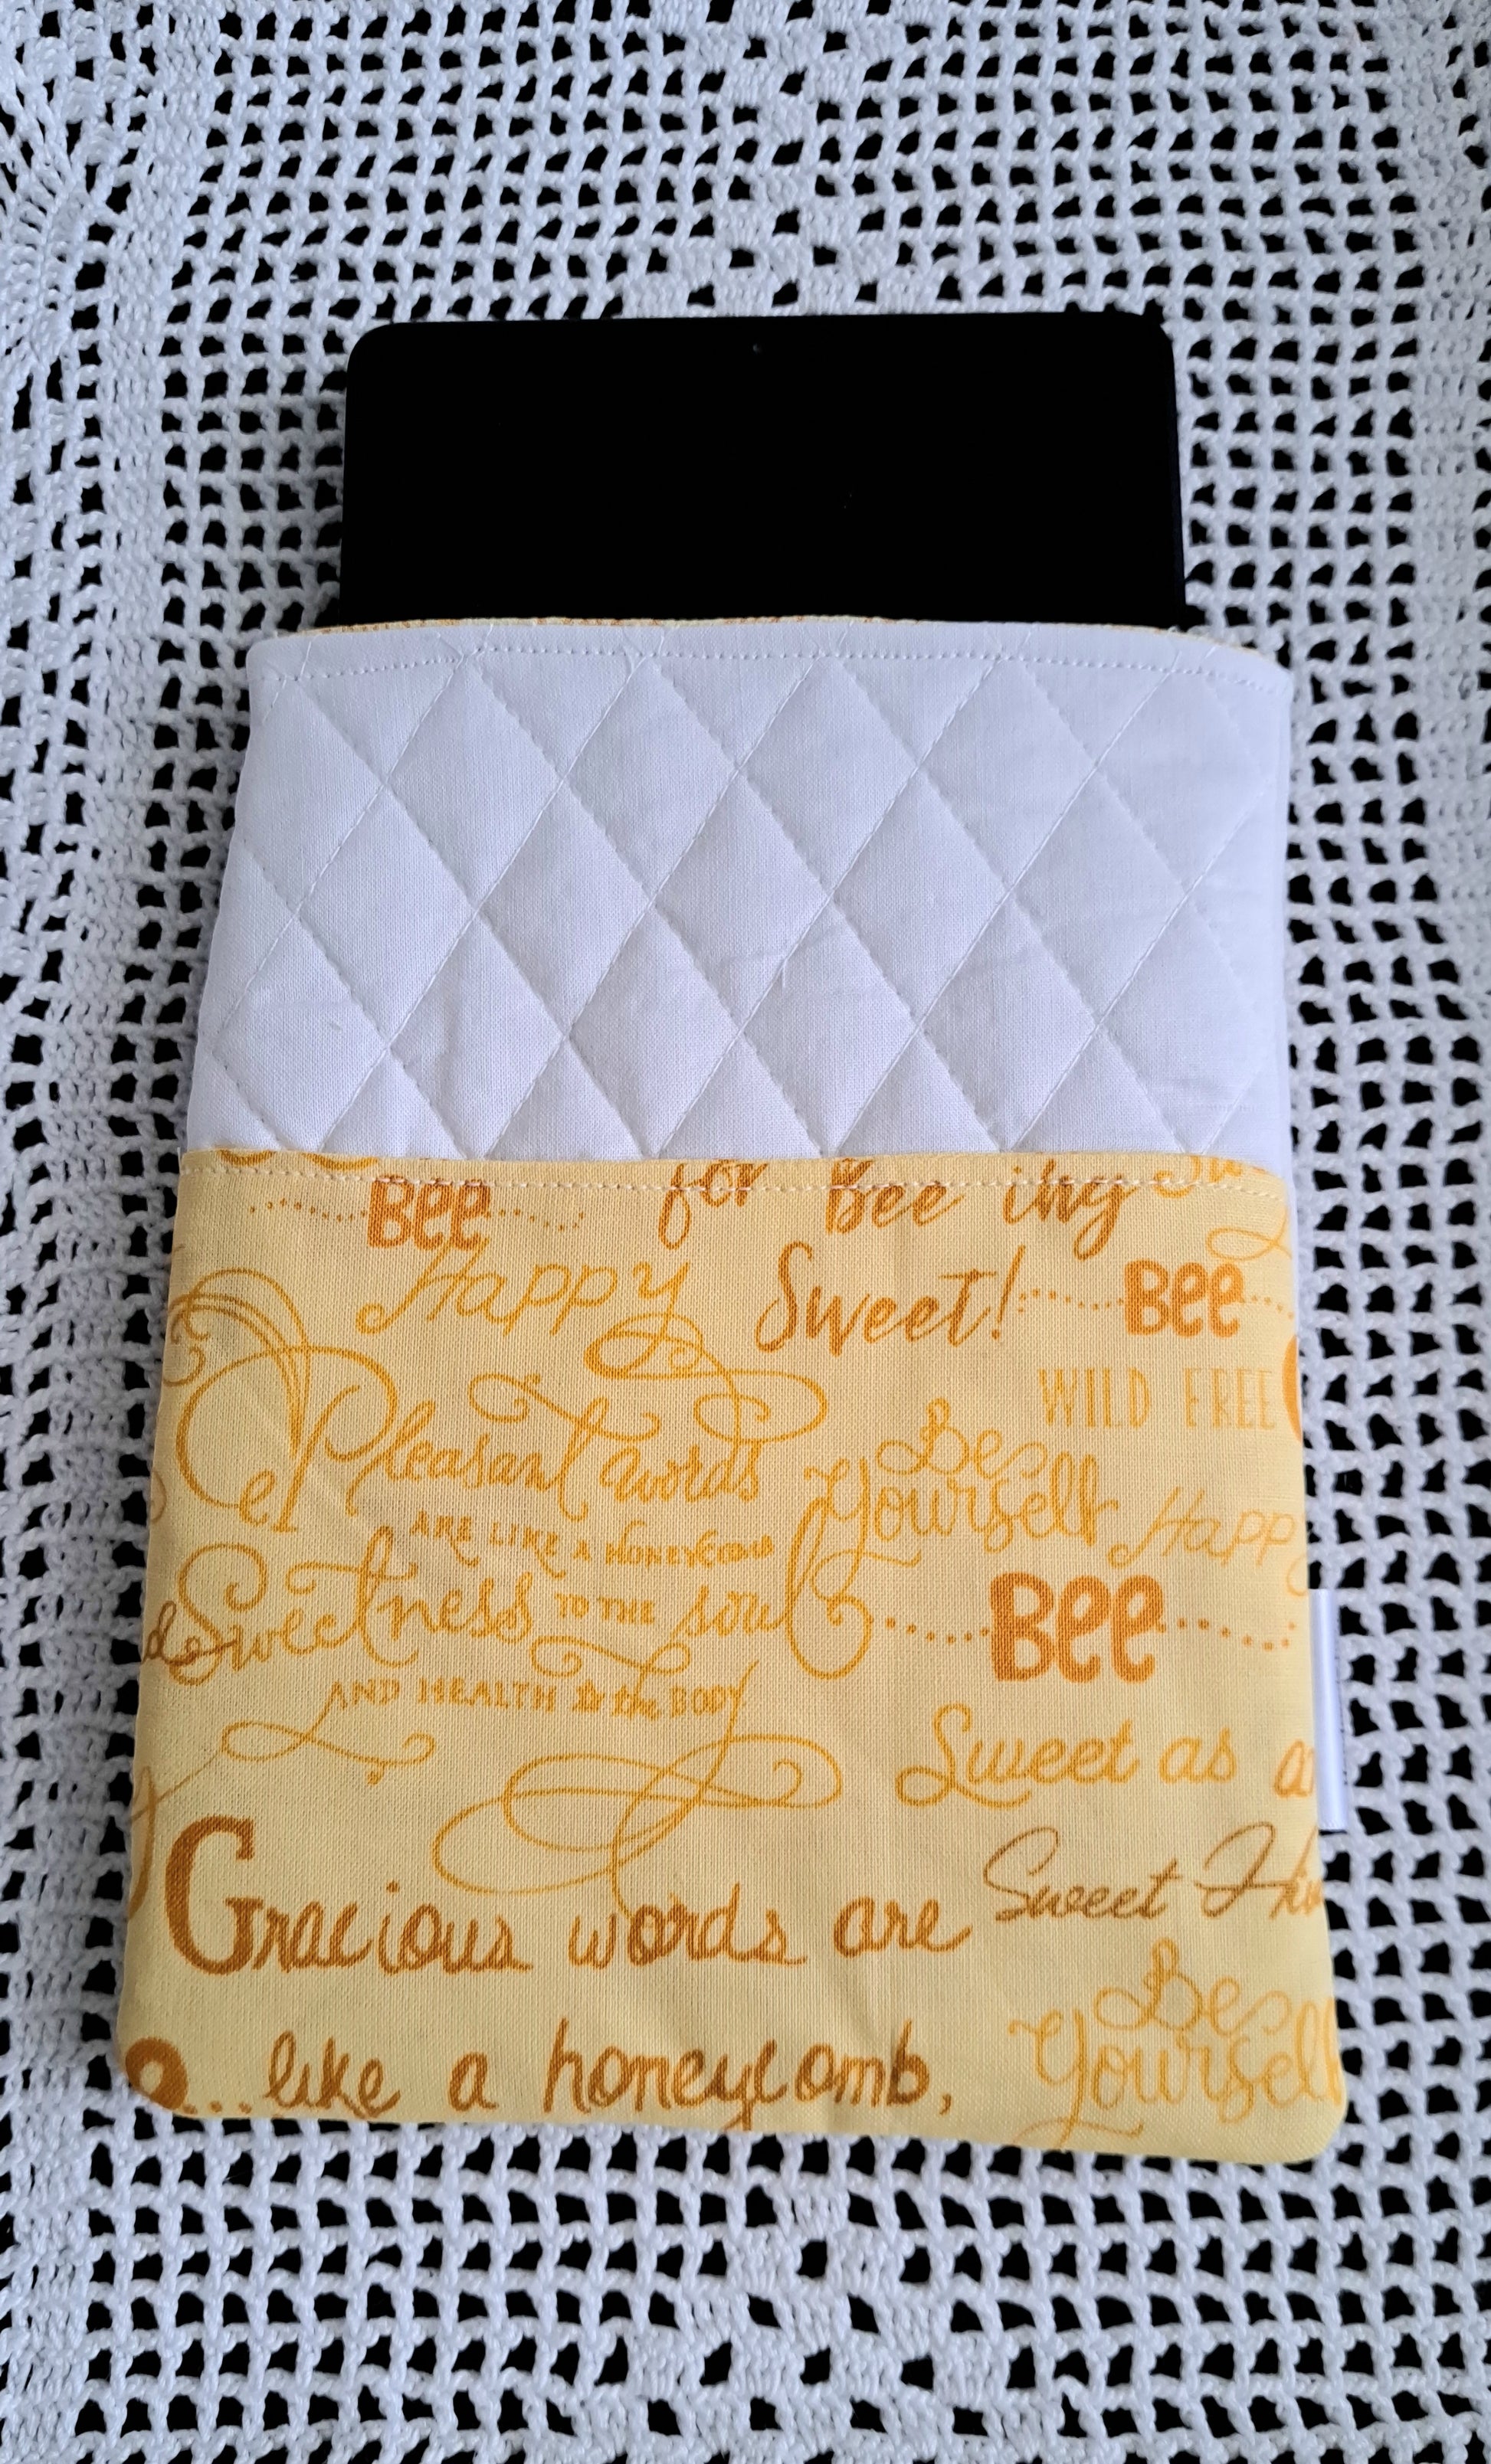 Bee for Bee ing
Happy Sweet! Bee
WILD FREE
Pleasant words Be
Yourself
ARE LIKE A HONEYCOMB Happy
Sweetness TO THE soul Bee
AND HEALTH to the BODY
Sweet as
Gracious words are Sweet
Be
Yourself
... like a honeycomb,